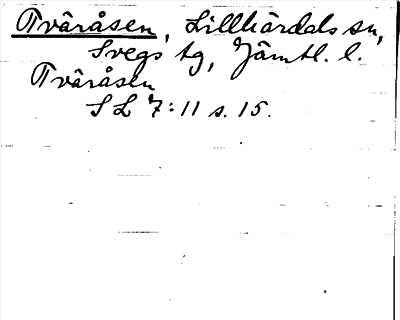 Tväråsen, Lillhärdals sn,
Svegs tg, Jämtl. l.
Tväråsen
SL 7:11 s. 15.